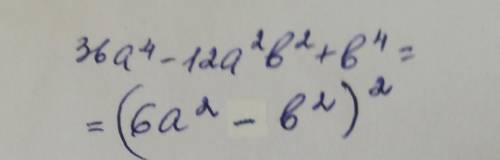 36a⁴ - 12a²b² + b⁴ =
= (6a² - b²)²